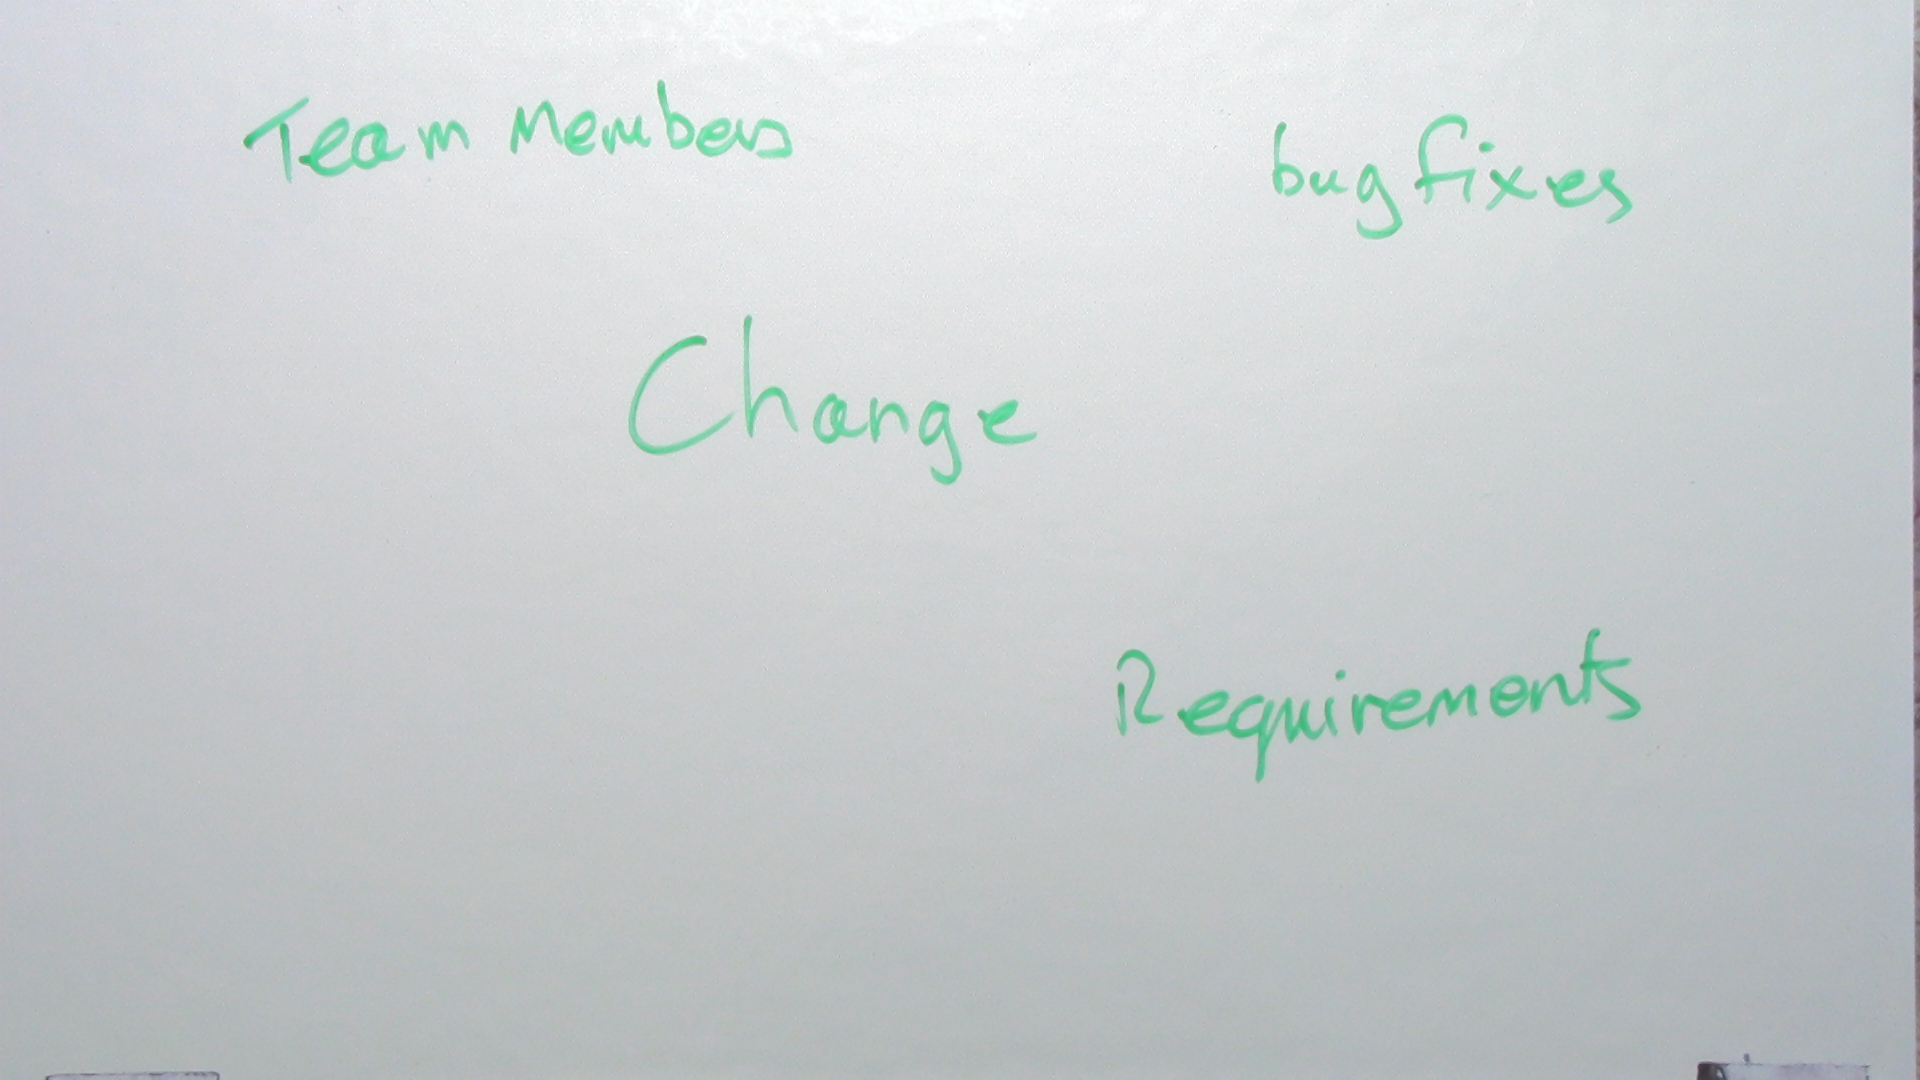 Team Members
bug fixes
Change
Requirements